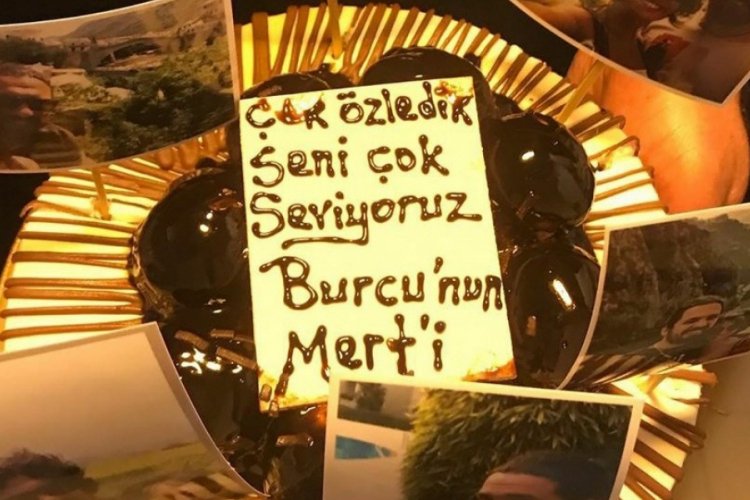 Çok özledik
Seni çok
Seviyoruz
Burcu'nun
Mert'i